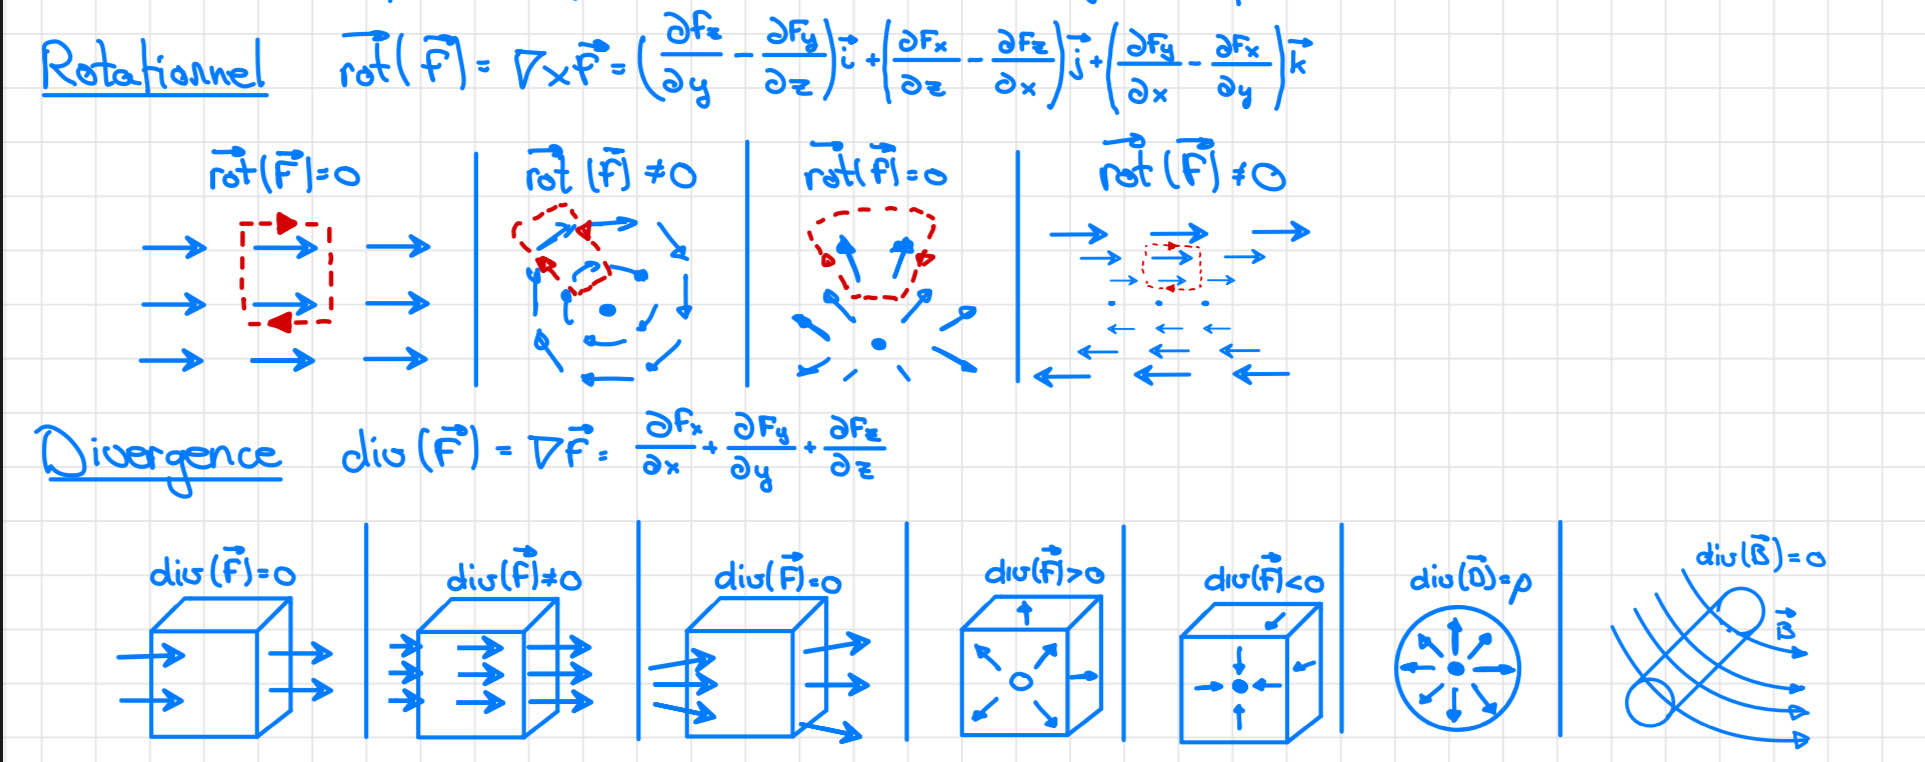 Rotationnel rot(F) = ∇×F = (∂Fz/∂y - ∂Fy/∂z) i + (∂Fx/∂z - ∂Fz/∂x) j + (∂Fy/∂x - ∂Fx/∂y) k
rot(F)=0 rot(F)≠0 rot(F)=0 rot(F)≠0
Divergence div(F) = ∇F = ∂Fx/∂x + ∂Fy/∂y + ∂Fz/∂z
div(F)=0 div(F)≠0 div(F)=0 div(F)>0 div(F)<0 div(D)=ρ div(B)=0
B